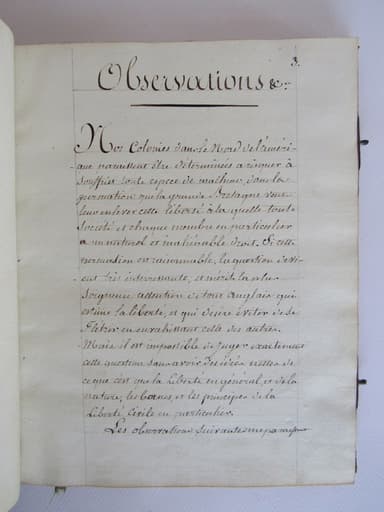 3.
Observations &c.
Nos Colonies dans le Nord de l'améri-
que paraissent être déterminées a risquer à
Souffrir toute espece de malheur, dans la
persuation que la grande Bretagne veut
leur enlever cette liberté à la quelle toute
Société et chaque membre en particulier
a un naturel et inaliénable droit. Si cette
persuation est raisonnable, la question devi-
ent très intéressante, et mérite la plus
Soigneuse attention de tout anglais qui
estime la liberté, et qui désire éviter de se
flétrir en envahissant celle des autres.
Mais il est impossible de juger exactement
cette question sans avoir des idées nettes de
ce que c'est que la liberté en général, et de la
nature, les bornes, et les principes de la
Liberté Civile en particulier.
Les observations suivantes me paraissent